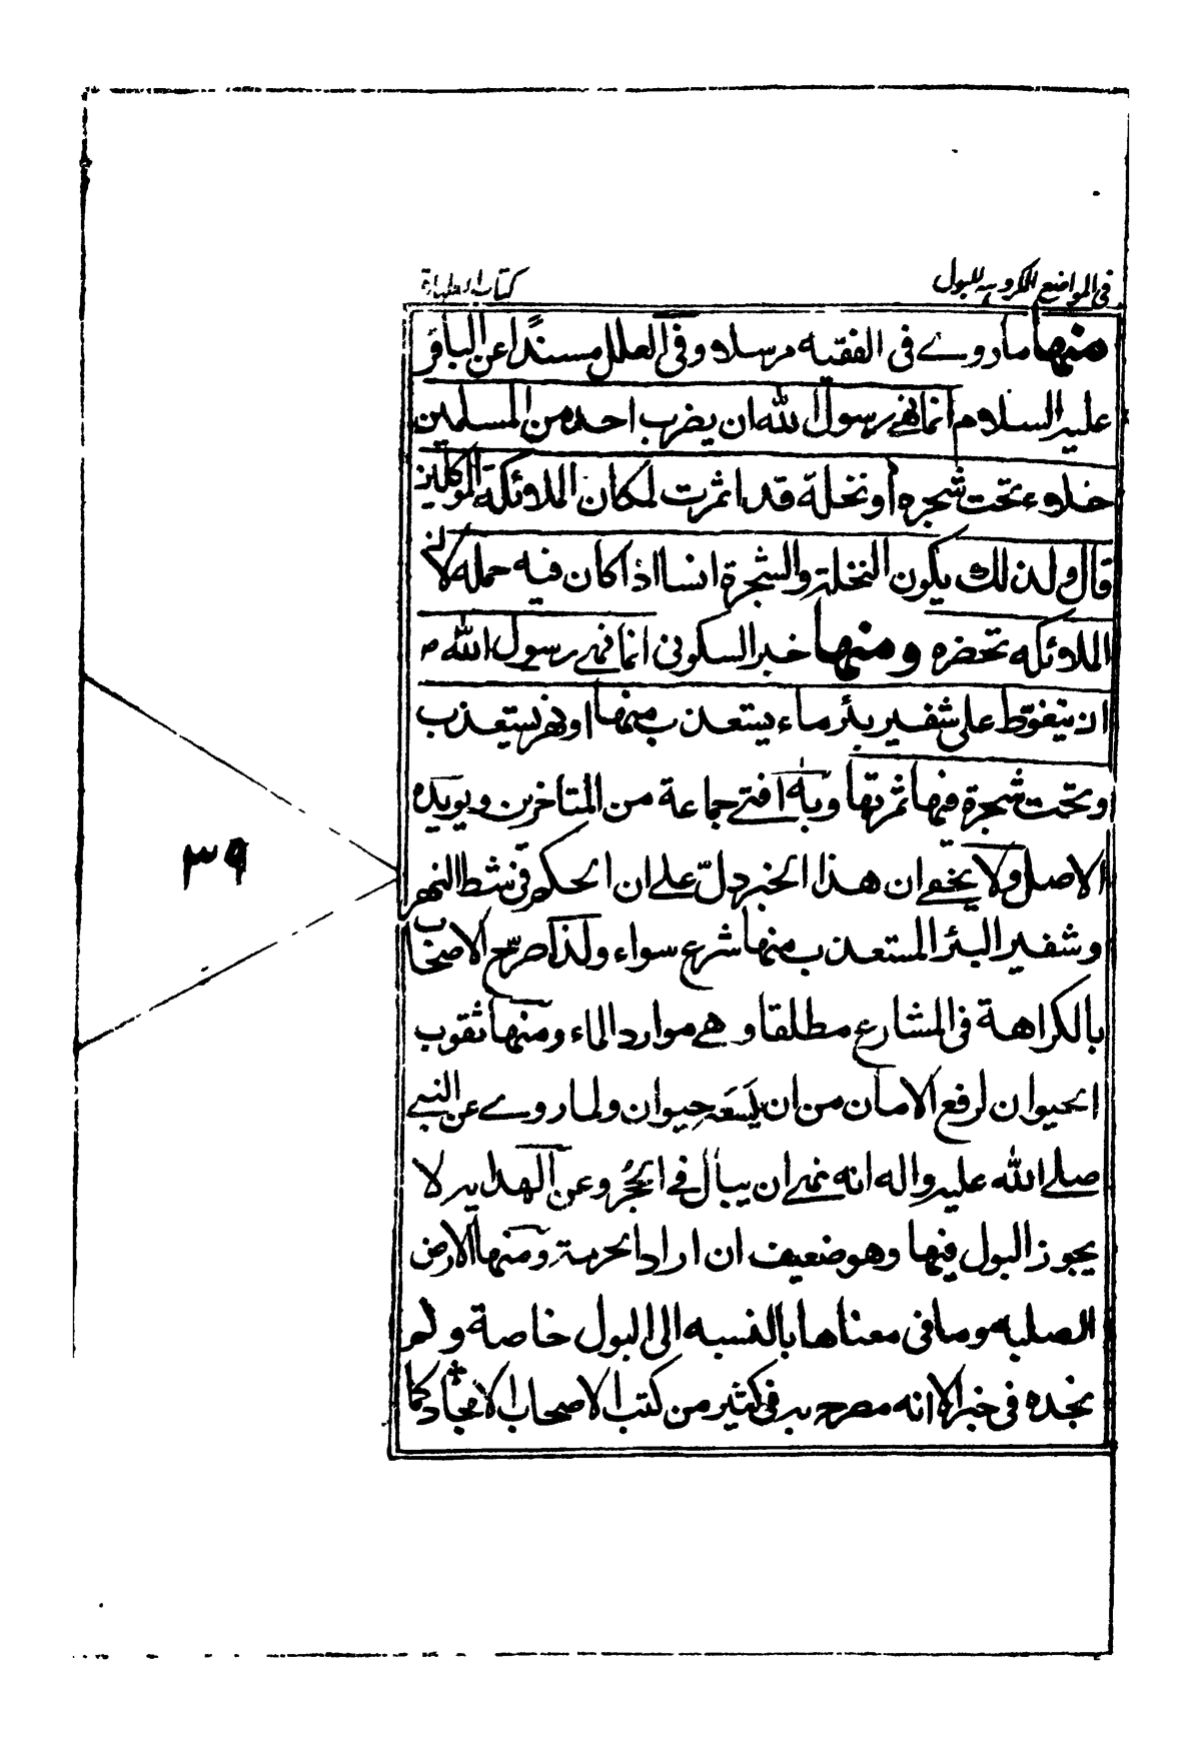 في المواضع المكروهة للبول
كتاب الطهارة
منها ما روے في الفقيه مرسلا وفي العلل مسندًا عن الباقر
عليه السلام انما نهى رسول الله ان يضرب احد من المسلمين
خلاء تحت شجرة او نخلة قد اثمرت لمكان الملائكة الموكلين
قال ولذلك يكون النخلة والشجرة انسا اذا كان فيه حمله لان
الملائكه تحضره ومنها خبر السكوني انما نهى رسول الله ص
ان يتغوّط على شفير بئر ماء يستعذب منها او نهر يستعذب
او تحت شجرة فيها ثمرتها وبه افتے جماعة من المتاخرين ويويده
الاصل ولا يخفے ان هذا الخبر دلّ على ان الحكم في شط النهر
و شفير البئر المستعذب منها شرع سواء ولذا صرّح الاصحاب
بالكراهة في المشارع مطلقا وهے موارد الماء ومنها ثقوب
الحيوان لرفع الامان من ان يلسعه حيوان ولما روے عن النبے
صلے الله عليه واله انه نهى ان يبال في الجُحر وعن الهداية لا
يجوز البول فيها وهو ضعيف ان اراد الحرمة ومنها الارض
الصلبه وما في معناها بالنسبه الى البول خاصة ولم
نجده في خبر الا انه مصرح به في كثير من كتب الاصحاب كما
٣٩